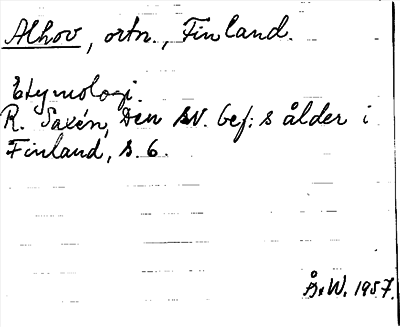 Alhov, ortn., Finland.
Etymologi.
R. Saxén, Den sv. bef:s ålder i
Finland, s. 6.
Å.W. 1957.